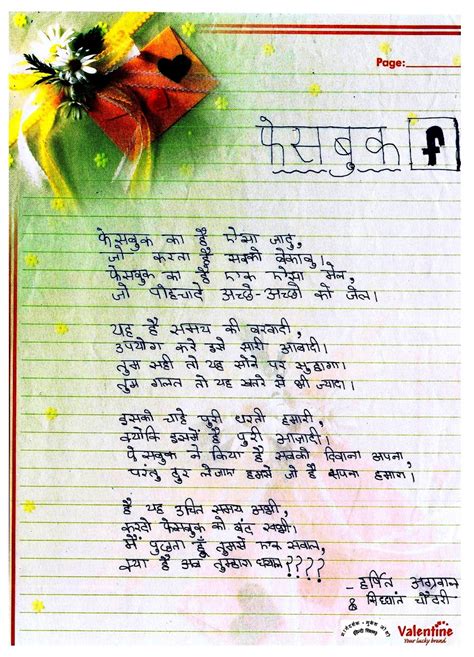 Page:
फेसबुक f
फेसबुक का है ऐसा जादु,
जो करता सबको बेकाबु।
फेसबुक का है एक ऐसा मेल,
जो पोहचादे अच्छे-अच्छो को जेल।
यह है समय की बरबादी,
उपयोग करे इसे सारी आबादी।
तुम सही तो यह सोने पर सुहागा।
तुम गलत तो यह खतरे से भी ज्यादा।
इसको चाहे पुरी धरती हमारी,
क्योकि इसमें है पुरी आज़ादी।
फेसबुक ने किया है सबको दिवाना अपना,
परंतु दुर लेजाए हमसे जो है अपना हमारा।
है यह उचित समय अभी,
करदो फेसबुक को बंद सभी।
मैं पुछता हूँ तुमसे एक सवाल,
क्या है अब तुम्हारा ख्याल????
- हर्षित अग्रवाल
& सिध्धांत चौधरी
Valentine
Your lucky brand